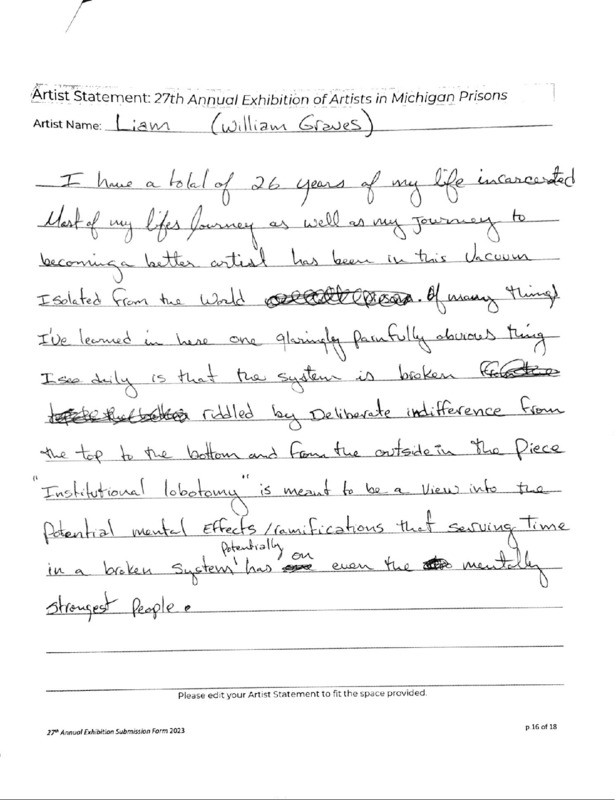 Artist Statement: 27th Annual Exhibition of Artists in Michigan Prisons
Artist Name: Liam (William Graves)
I have a total of 26 years of my life incarcerated
Most of my lifes Journey as well as my Journey to
becoming a better artist has been in this Vacuum
Isolated from the World . Of many things
I've learned in here one glaringly painfully obvious thing
I see daily is that the system is broken
riddled by Deliberate indifference from
the top to the bottom and from the outside in the Piece
"Institutional lobotomy" is meant to be a view into the
Potential mental Effects/ramifications that serving Time
in a broken System potentially has on even the mentally
strongest People.
Please edit your Artist Statement to fit the space provided.
27th Annual Exhibition Submission Form 2023
p 16 of 18